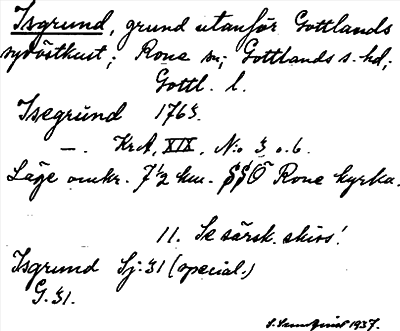 Isgrund, grund utanför Gottlands
sydöstkust; Rone sn; Gottlands s. hd;
Gottl. l.
Isegrund 1763.
—. KrA, XIX, N:o 3 o. 6.
Läge omkr. 7 1/2 km. SSÖ Rone kyrka.
11. Se särsk. skiss!
Isgrund Sj: 31 (special.)
G. 31.
1937.